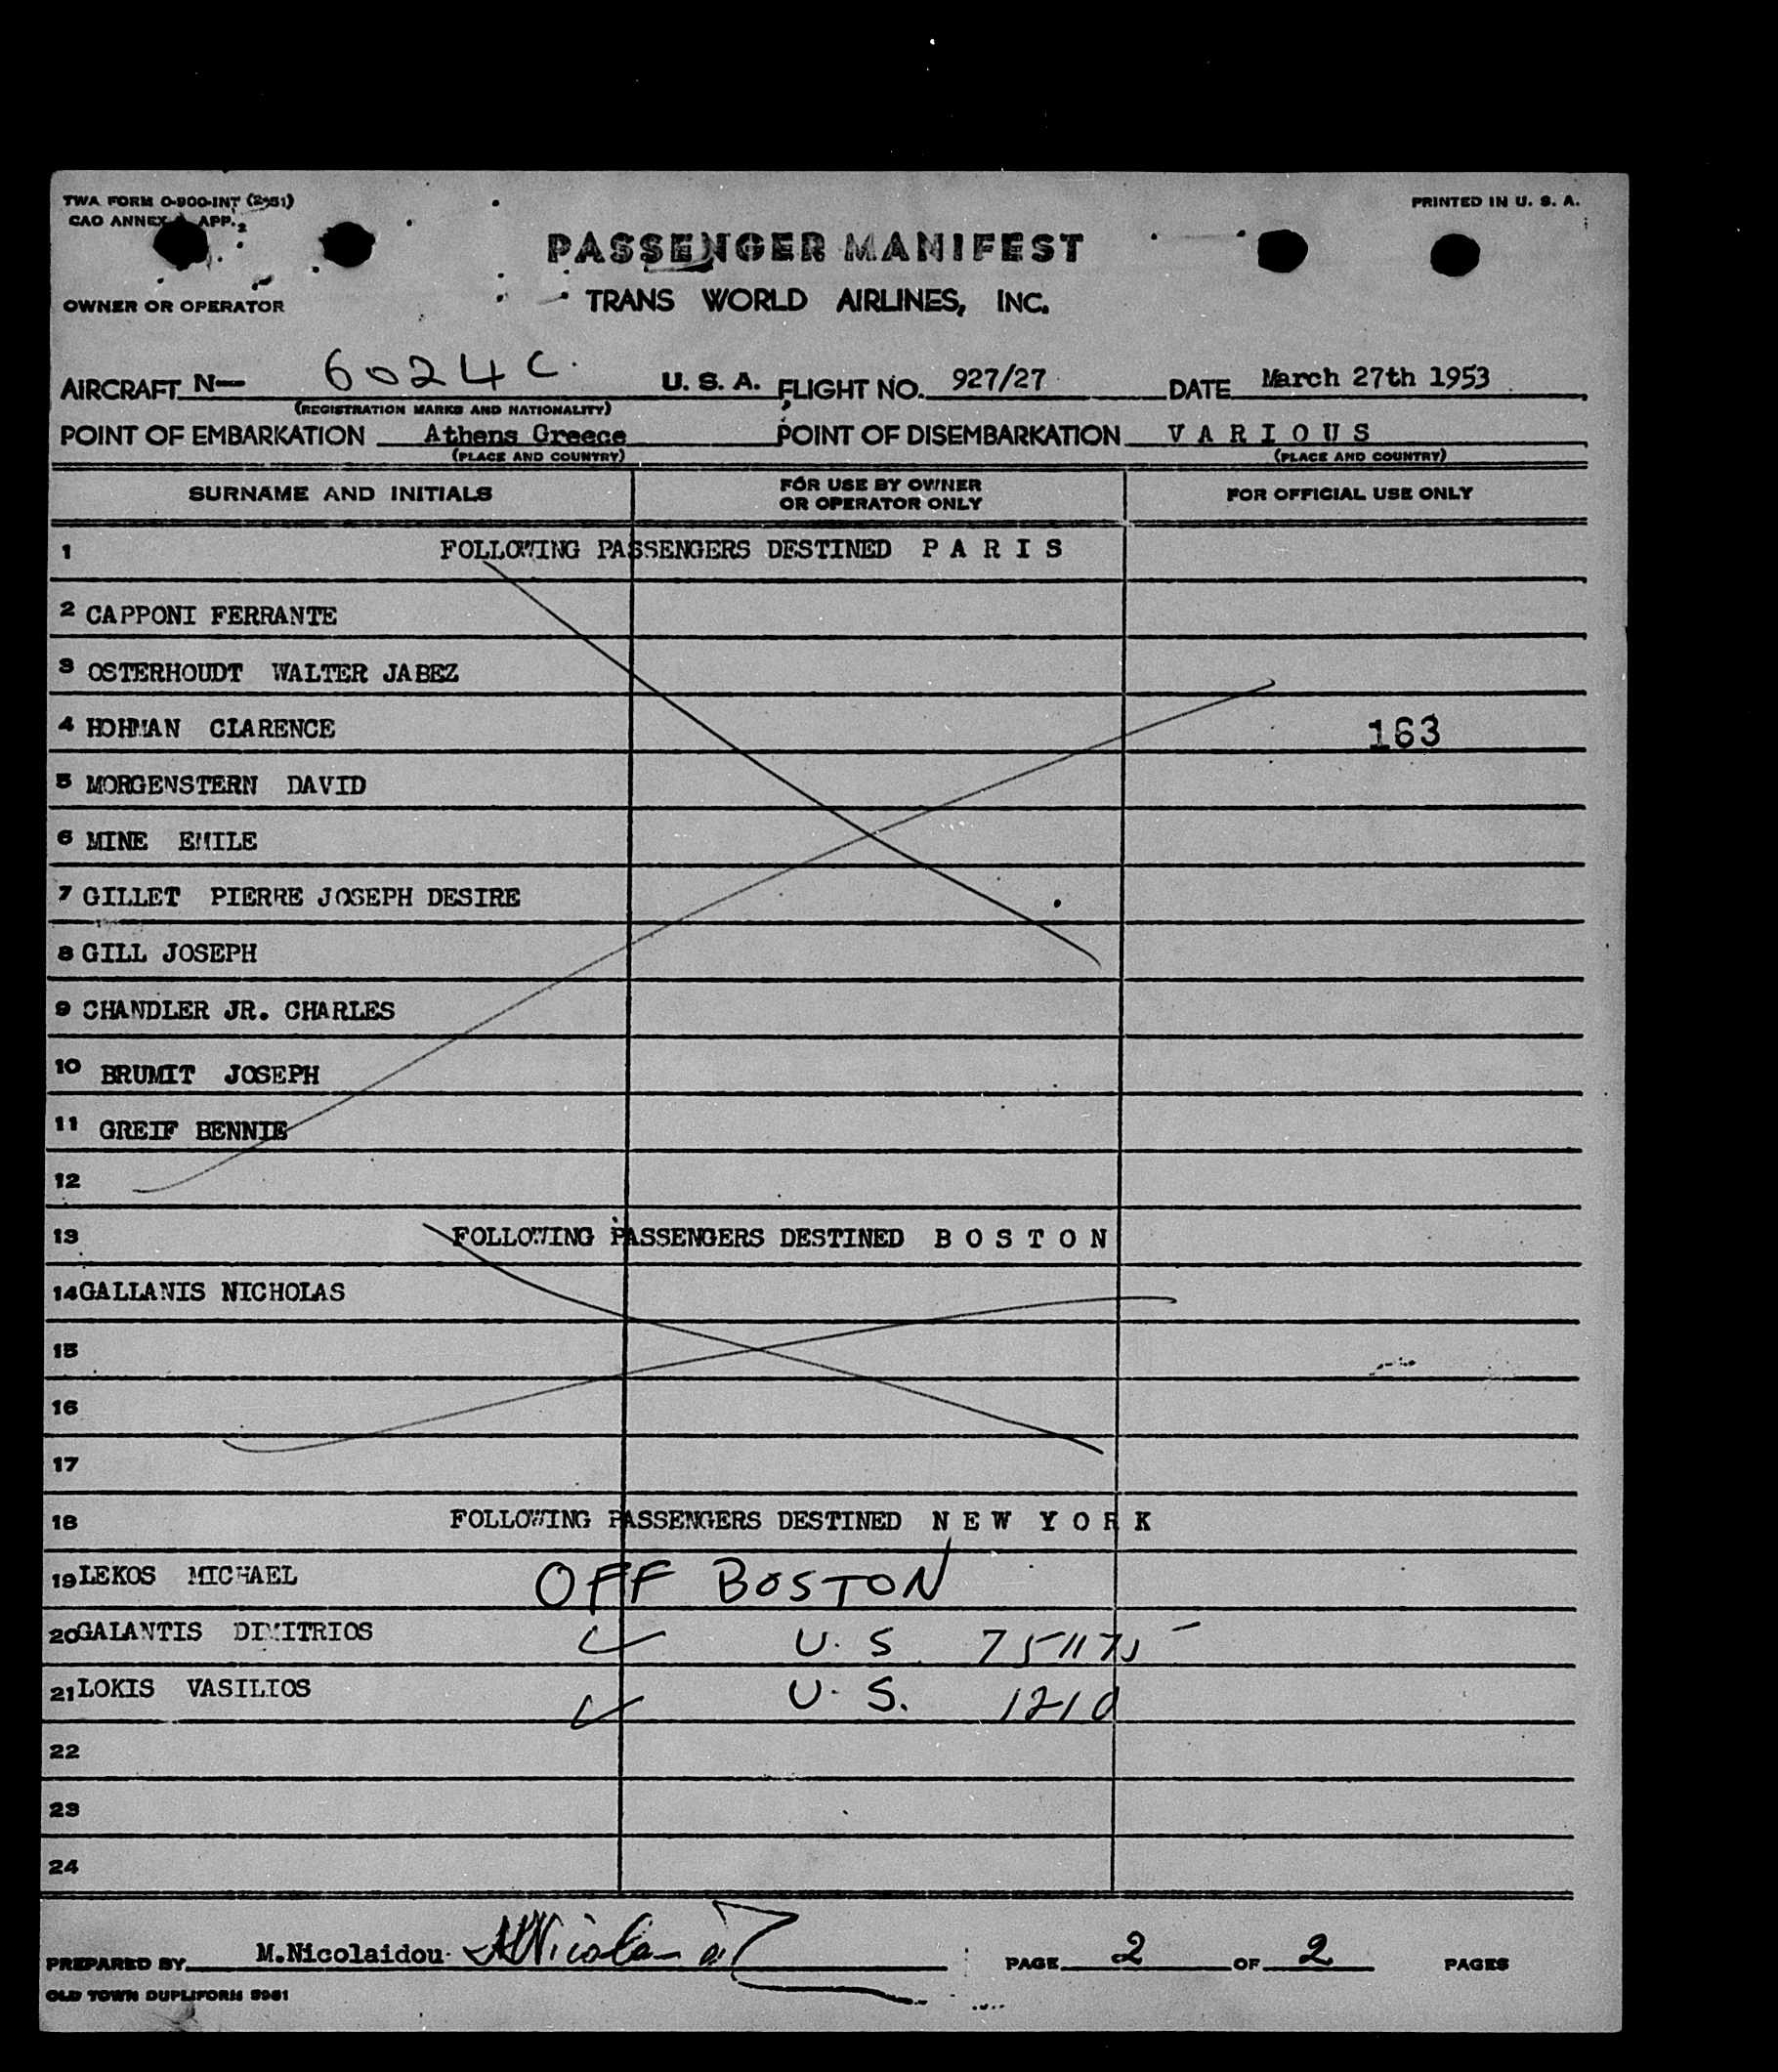 TWA FORM O-900-INT (2-51)
PRINTED IN U. S. A.
CAO ANNEX APP. 2
PASSENGER MANIFEST
OWNER OR OPERATOR
TRANS WORLD AIRLINES, INC.
AIRCRAFT N— 6024C. U. S. A. FLIGHT NO. 927/27 DATE March 27th 1953
(REGISTRATION MARKS AND NATIONALITY)
POINT OF EMBARKATION Athens Greece POINT OF DISEMBARKATION V A R I O U S
(PLACE AND COUNTRY) (PLACE AND COUNTRY)
SURNAME AND INITIALS FOR USE BY OWNER OR OPERATOR ONLY FOR OFFICIAL USE ONLY
1 FOLLOWING PASSENGERS DESTINED P A R I S
2 CAPPONI FERRANTE
3 OSTERHOUDT WALTER JABEZ
4 HOHMAN CLARENCE 163
5 MORGENSTERN DAVID
6 MINE EMILE
7 GILLET PIERRE JOSEPH DESIRE
8 GILL JOSEPH
9 CHANDLER JR. CHARLES
10 BRUMIT JOSEPH
11 GREIF BENNIE
12
13 FOLLOWING PASSENGERS DESTINED B O S T O N
14 GALLANIS NICHOLAS
15
16
17
18 FOLLOWING PASSENGERS DESTINED N E W Y O R K
19 LEKOS MICHAEL OFF BOSTON
20 GALANTIS DIMITRIOS U. S.
21 LOKIS VASILIOS U. S. 1210
22
23
24
PREPARED BY M.Nicolaidou PAGE 2 OF 2 PAGES
OLD TOWN DUPLIFORM